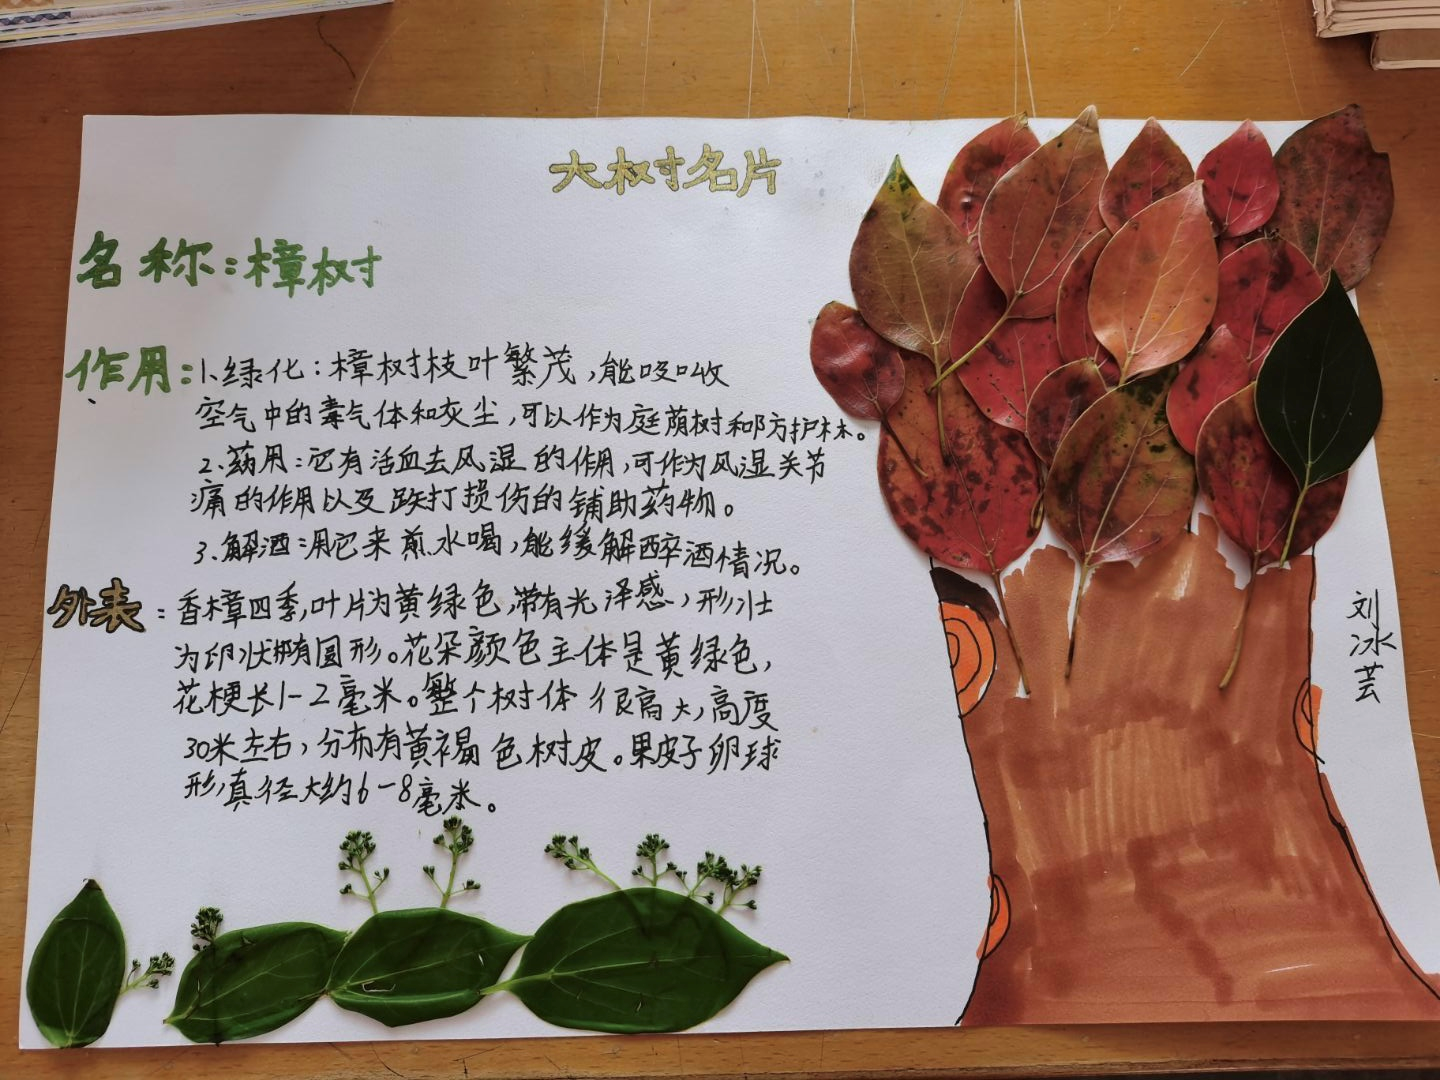 大树名片
名称:樟树
作用:1、绿化:樟树枝叶繁茂,能吸收
空气中的毒气体和灰尘,可以作为庭荫树和防护林。
2、药用:它有活血去风湿的作用,可作为风湿关节
痛的作用以及跌打损伤的铺助药物。
3、解酒:用它来煎水喝,能缓解醉酒情况。
外表:香樟四季,叶片为黄绿色,带有光泽感,形状
为卵状椭圆形。花朵颜色主体是黄绿色,
花梗长1-2毫米。整个树体很高大,高度
30米左右,分布有黄褐色树皮。果皮子卵球
形,真径大约6-8毫米。
刘冰芸